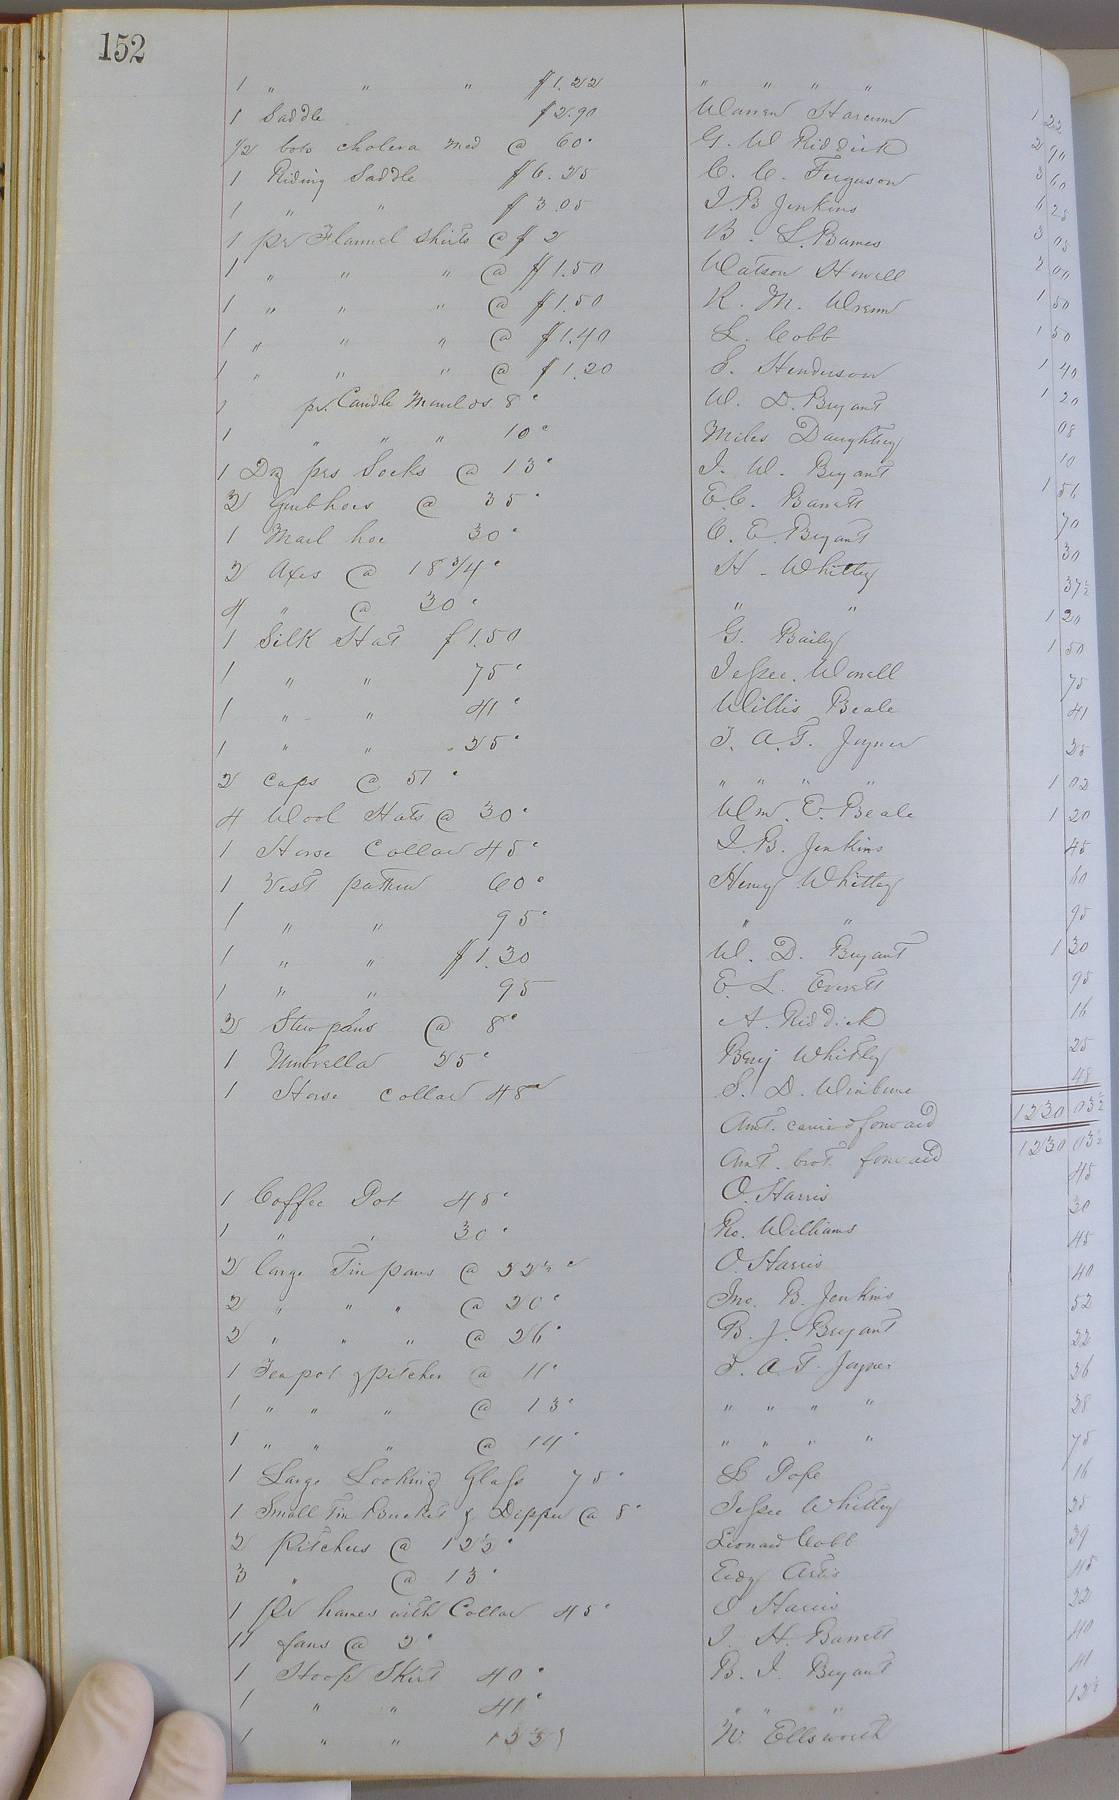 152
1 " " " $1.22 " " " " 1 22
1 Saddle $2.90 Warren Harcum 2 90
1/2 bots cholera med @ 60c G. W Riddick 3 60
1 Riding Saddle $6.25 C. C. Ferguson 6 25
1 " " $3.05 I. B Jenkins 3 05
1 pr Flannel Shirts @ $2 B. L. Barnes 2 00
1 " " " @ $1.50 Watson Howell 1 50
1 " " " @ $1.50 R. M. Wrenn 1 50
1 " " " @ $1.40 L. Cobb 1 40
1 " " " @ $1.20 S. Henderson 1 20
1 pr. Candle Moulds 8c W. D. Bryant 08
1 " " " 10c Miles Daughtry 10
1 Doz prs Socks @ 13c J. W. Bryant 1 56
2 Grubhoes @ 35c E. C. Barrett 70
1 Marl hoe 30c C. E. Bryant 30
2 Axes @ 18 3/4c H. Whitley 37 1/2
4 " @ 30c " " 1 20
1 Silk Hat $1.50 G. Baily 1 50
1 " " 75c Jessee Worrell 75
1 " " 41c Willis Beale 41
1 " " 25c J. A. T. Joyner 25
2 caps @ 51c " " " " 1 02
4 Wool Hats @ 30c Wm. E. Beale 1 20
1 Horse Collar 45c I. B. Jenkins 45
1 Vest pattern 60c Henry Whitley 60
1 " " 95c " " 95
1 " " $1.30 W. D. Bryant 1 30
1 " " 95 E. L. Everett 95
2 Stewpans @ 8c A. Riddick 16
1 Umbrella 25c Benj Whitley 25
1 Horse Collar 48c S. D. Winborne 48
Amt. carried forward 1230 03 1/2
Amt. brot. forward 1230 03 1/2
1 Coffee Pot 45c O. Harris 45
1 " " 30c Tho. Williams 30
2 large Tin pans @ 22 1/2c O. Harris 45
2 " " " @ 20c Jno. B. Jenkins 40
2 " " " @ 26c B. J. Bryant 52
1 Teapot & pitcher @ 11c J. A. T. Joyner 22
1 " " " @ 13c " " " " 26
1 " " " @ 14c " " " " 28
1 Large Looking Glass 75c L Pope 75
1 Small Tin Bucket & Dipper @ 8c Jessee Whitley 16
2 Pitchers @ 12 1/2c Leonard Cobb 25
3 " @ 13c Eady Artis 39
1 Pr hames with Collar 45c O Harris 45
11 fans @ 2c J. H. Barrett 22
1 Hoop Skirt 40c B. J. Bryant 40
1 " " 41c " " " 41
1 " " 12 1/2 W. Ellsworth 12 1/2